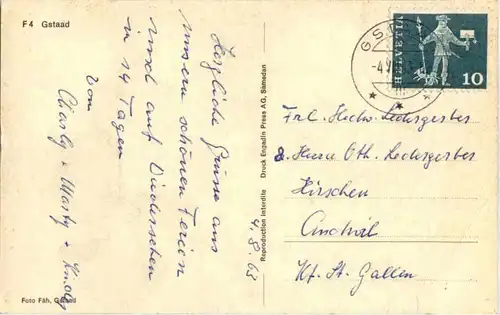 F4 Gstaad
Herzliche Grüsse aus
unsern schönen Ferien
und auf Wiedersehen
in 14 Tagen
von
Charly + Marty +
4.8.63
Foto Fäh, Gstaad
Reproduction interdite Druck Engadin Press AG, Samedan
GST
-4.V
HELVETIA
10
Frl. Hedw. Ledergerber
& Herrn Oth. Ledergerber
Hirschen
Andwil
Kt. St. Gallen